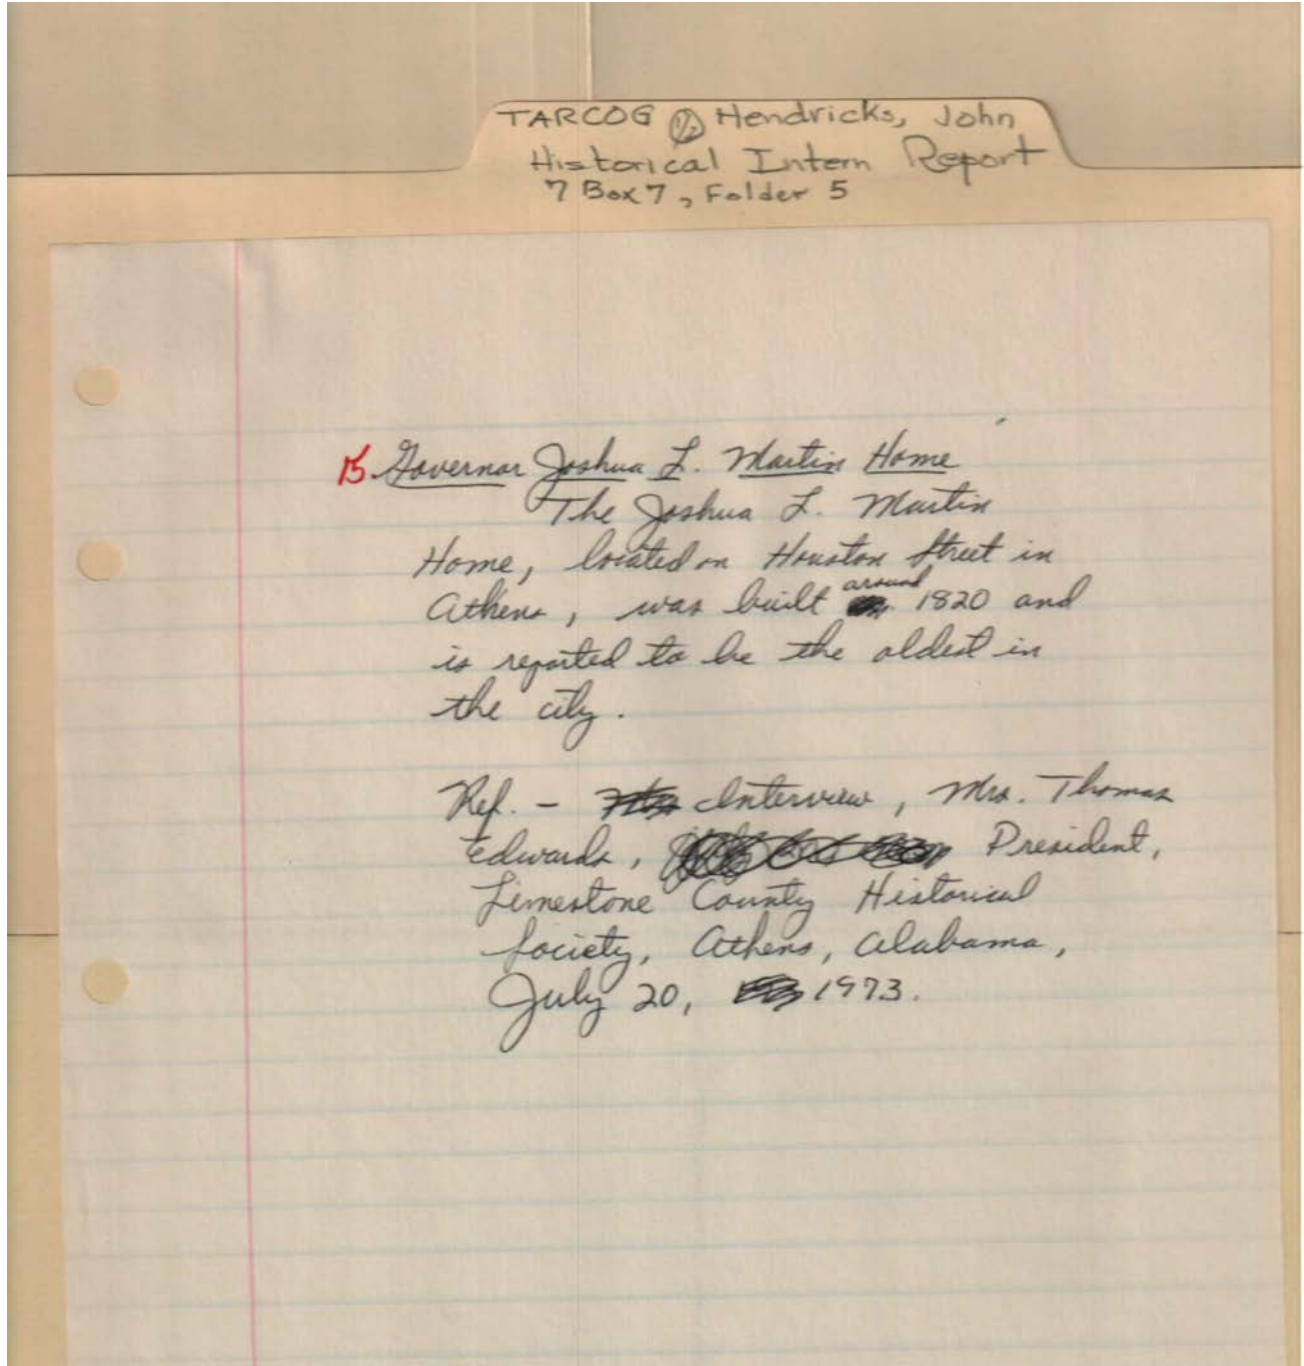 TARCOG 1/2 Hendricks, John
Historical Intern Report
7 Box 7, Folder 5
15. Governor Joshua L. Martin Home
The Joshua L. Martin
Home, located on Houston Street in
Athens, was built around 1820 and
is reported to be the oldest in
the city.
Ref. - Interview, Mrs. Thomas
Edwards, President,
Limestone County Historical
Society, Athens, Alabama,
July 20, 1973.